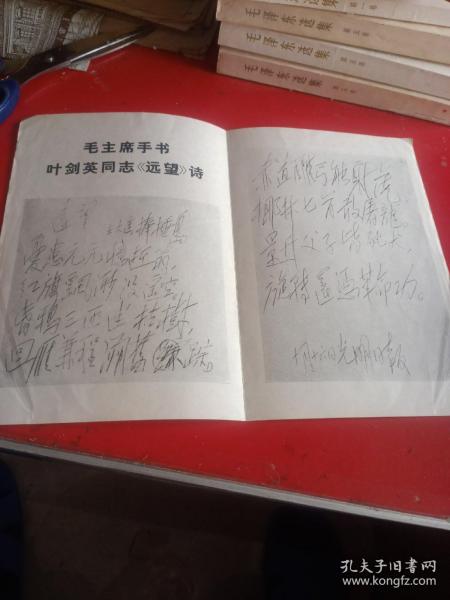 毛泽东选集
毛泽东选集
毛泽东选集
毛泽东选集
毛主席手书
叶剑英同志《远望》诗
远望
元元忆逝翁，
红旗飘渺没遥空。
昏鸦三匝迷枯樹，
回雁兼程溯舊踪。
赤道雕弓能射虎
椰林匕首敢屠龍
景升父子皆豚犬，
旋转还凭革命功。
光明日报
孔夫子旧书网
www.kongfz.com